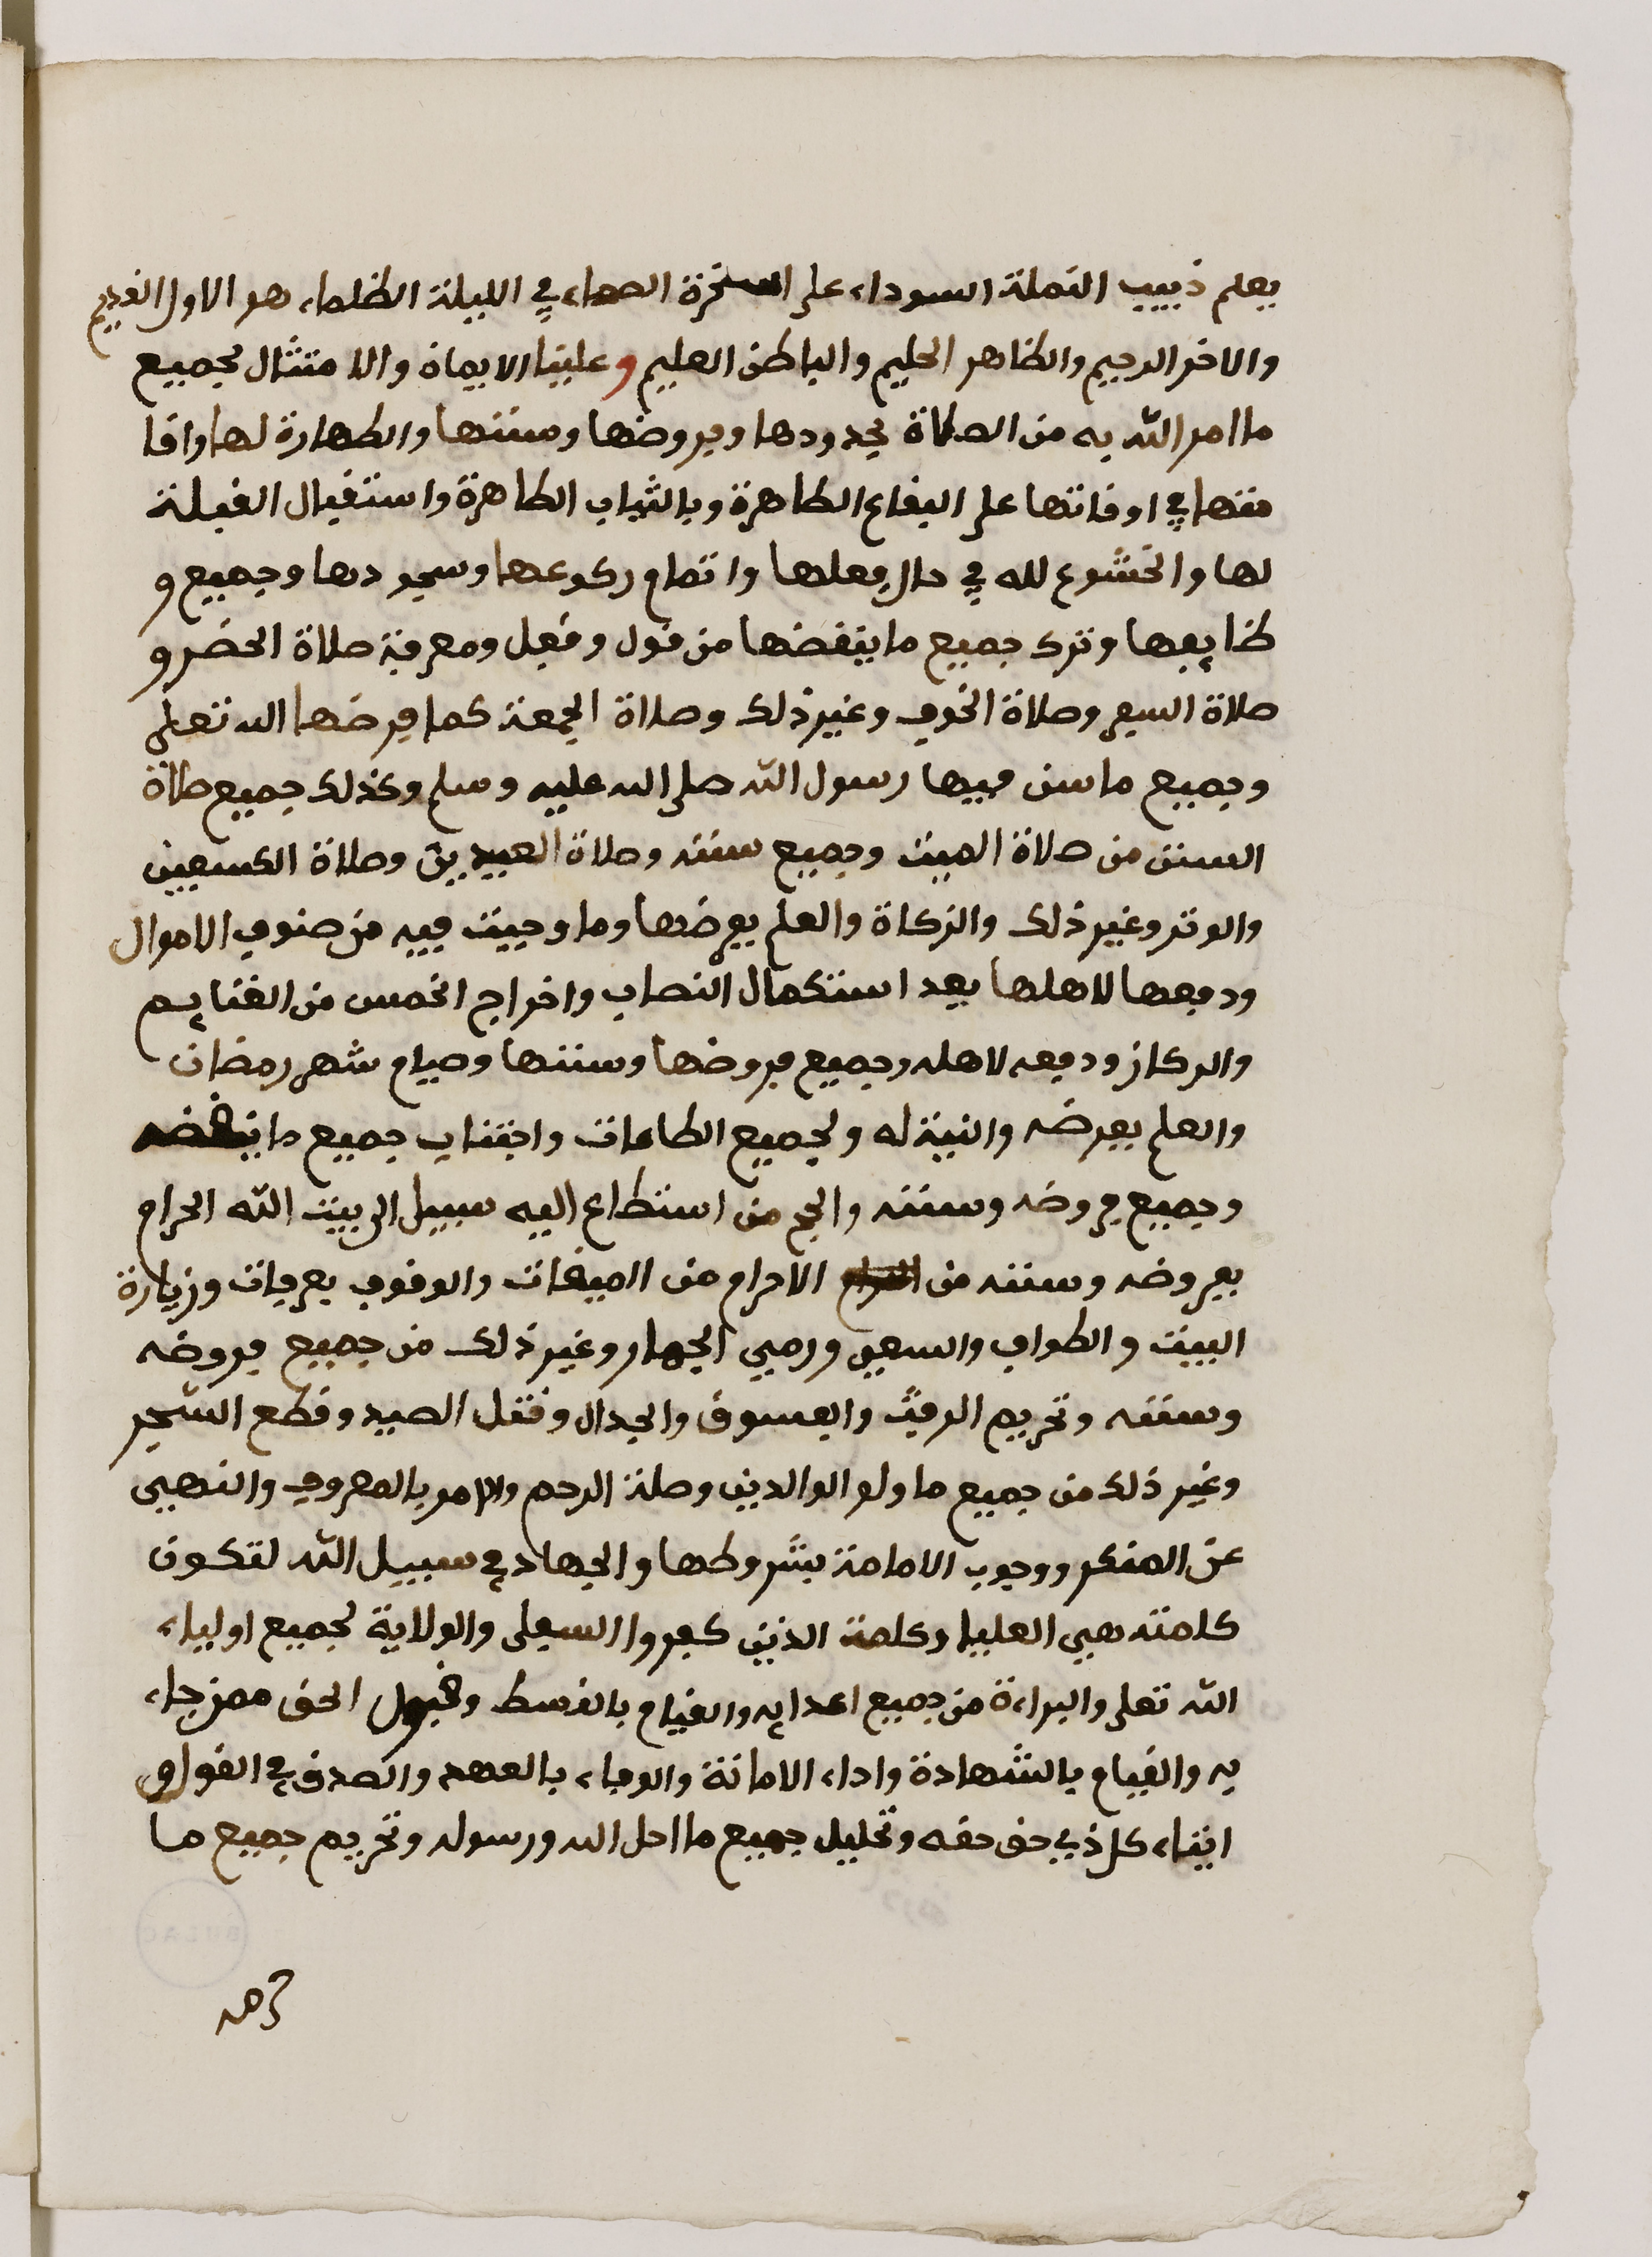 يعلم ذبيب النملة السوداء على الصخرة الصماء في الليلة الظلماء هو الاول القديم
والاخر الرحيم والظاهر الحليم والباطن العليم وعلينا الايمان والامتثال لجميع
ما امر الله به من الصلاة بحدودها وفروضها وسننها والطهارة لها واقا
متها في اوقاتها على البقاع الطاهرة وبالثياب الطاهرة واستقبال القبلة
لها والخشوع لله في حال فعلها واتمام ركوعها وسجودها وجميع و
ظايفها وترك جميع ما ينقضها من قول وفعل ومعرفة صلاة الحضر و
صلاة السفر وصلاة الخوف وغير ذلك وصلاة الجمعة كما فرضها الله تعلى
وجميع ما سن فيها رسول الله صلى الله عليه وسلم وكذلك جميع صلاة
السنن من صلاة الميت وجميع سننه وصلاة العيدين وصلاة الكسفين
والوتر وغير ذلك والزكاة والعلم بفرضها وما وجبت فيه من صنوف الاموال
ودفعها لاهلها بعد استكمال النصاب واخراج الخمس من الغنايم
والركاز ودفعه لاهله وجميع فروضها وسننها وصيام شهر رمضان
والعلم بفرضه والنية له ولجميع الطاعات واجتناب جميع ما ينقضه
وجميع فروضه وسننه والحج من استطاع اليه سبيل الى بيت الله الحرام
بفروضه وسننه من الاحرام من الميقات والوقوف بعرفات وزيارة
البيت والطواف والسعي ورمي الجمار وغير ذلك من جميع فروضه
وسننه وتحريم الرفث والفسوق والجدال وقتل الصيد وقطع الشجر
وغير ذلك من جميع ما ولو الوالدين وصلة الرحم والامر بالمعروف والنهي
عن المنكر ووجوب الامامة بشروطها والجهاد في سبيل الله لتكون
كلمته هي العليا وكلمة الذين كفروا السفلى والولاية لجميع اولياء
الله تعلى والبراءة من جميع اعدايه والقيام بالقسط وقبول الحق ممن جاء
به والقيام بالشهادة واداء الامانة والوفاء بالعهد والصدق في القول و
ايتاء كل ذي حق حقه وتحليل جميع ما احل الله ورسوله وتحريم جميع ما